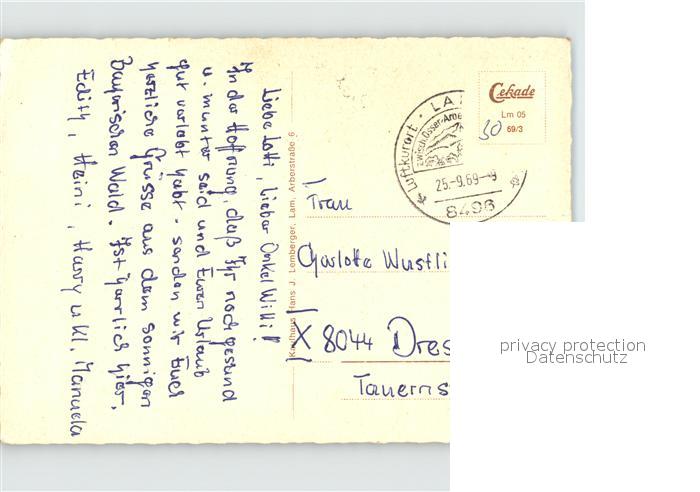 Liebe Lotti, lieber Onkel Willi!
In der Hoffnung, daß Ihr noch gesund
u. munter seid und Euren Urlaub
gut verlebt habt - senden wir Euch
herzliche Grüsse aus dem sonnigen
Bayrischen Wald. Ist herrlich hier.
Edith, Heini, Harry u kl. Manuela
Kaufhaus Hans J. Lemberger, Lam, Arberstraße 6
Cekade
Lm 05
69/3
30
Luftkurort · LA
zwisch. Osser-Arbe
25.-9.69--9
8496
Frau
Charlotte Wustli
X 8044 Dres
Tauerns
privacy protection
Datenschutz